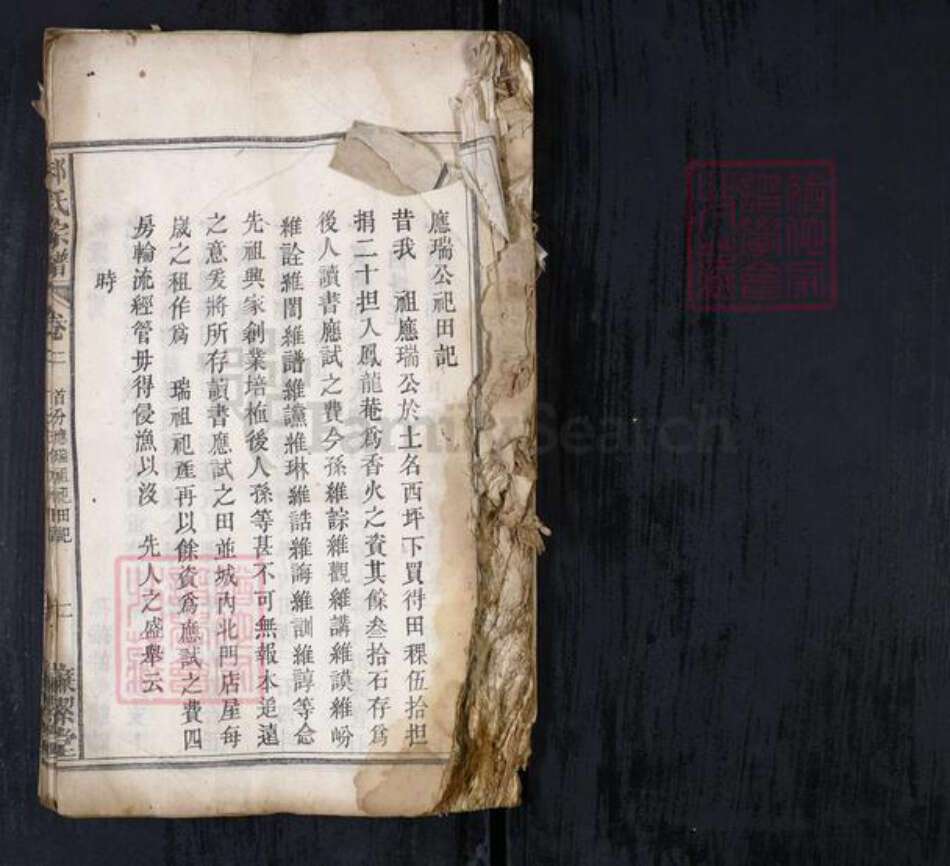 應瑞公祀田記
昔我 祖應瑞公於土名西坪下買得田稞伍拾担
捐二十担入鳳龍菴爲香火之資其餘叁拾石存爲
後人讀書應試之費今孫維諒維觀維講維謨維
維詮維誾維譜維讌維琳維誥維誨維訓維諄等念
先祖興家創業培植後人孫等甚不可無報本追遠
之意爰將所存讀書應試之田並城內北門店屋每
嵗之租作爲 瑞祖祀產再以餘資爲應試之費四
房輪流經管毋得侵漁以沒 先人之盛舉云
時
氏宗譜
卷二
祀田記
二
潔堂
FamilySearch